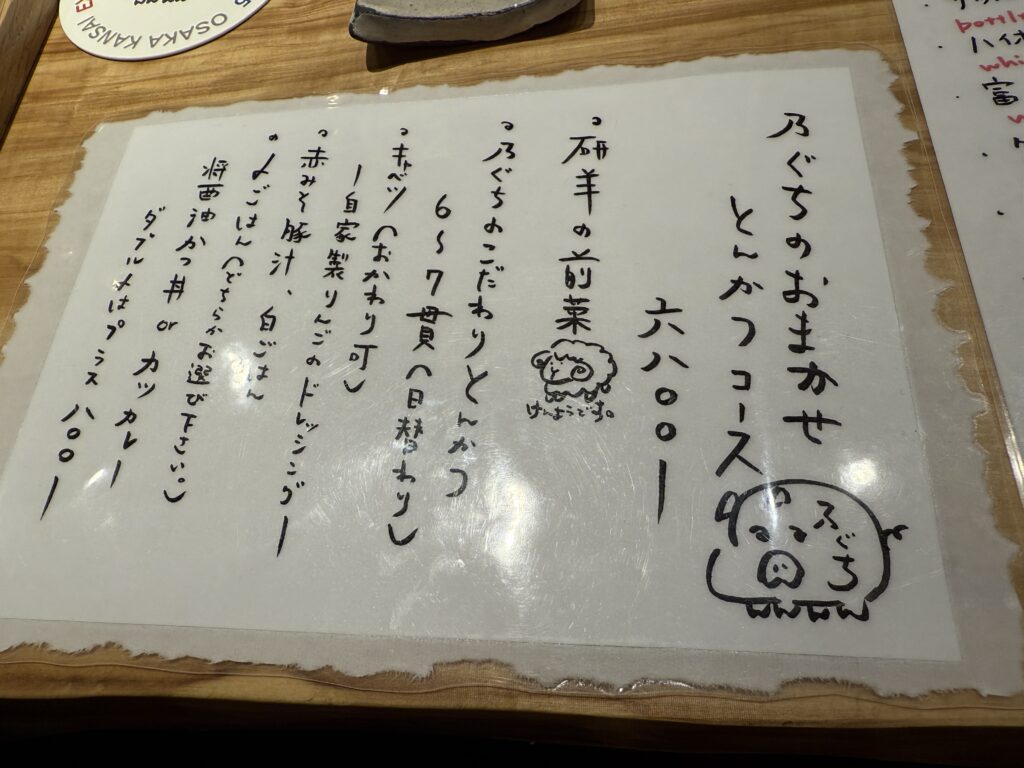 乃ぐちのおまかせ
とんかつコース
乃ぐち
六八〇〇ー
。研羊の前菜
けんようです。
。乃ぐちのこだわりとんかつ
6〜7貫(日替わり)
。キャベツ(おかわり可)
ー自家製りんごのドレッシングー
。赤みそ豚汁、白ごはん
。〆ごはん(どちらかお選び下さい。)
将西油かつ丼 or カツカレー
ダブルメはプラス八〇〇ー
OSAKA KANSAI
ハイボ
whi
富